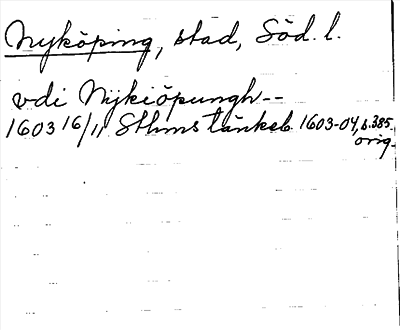 Nyköping, stad, Söd. l.
vdi Nykiöpungh--
1603 16/11 Sthms tänkeb. 1603-04, s. 385.
orig.